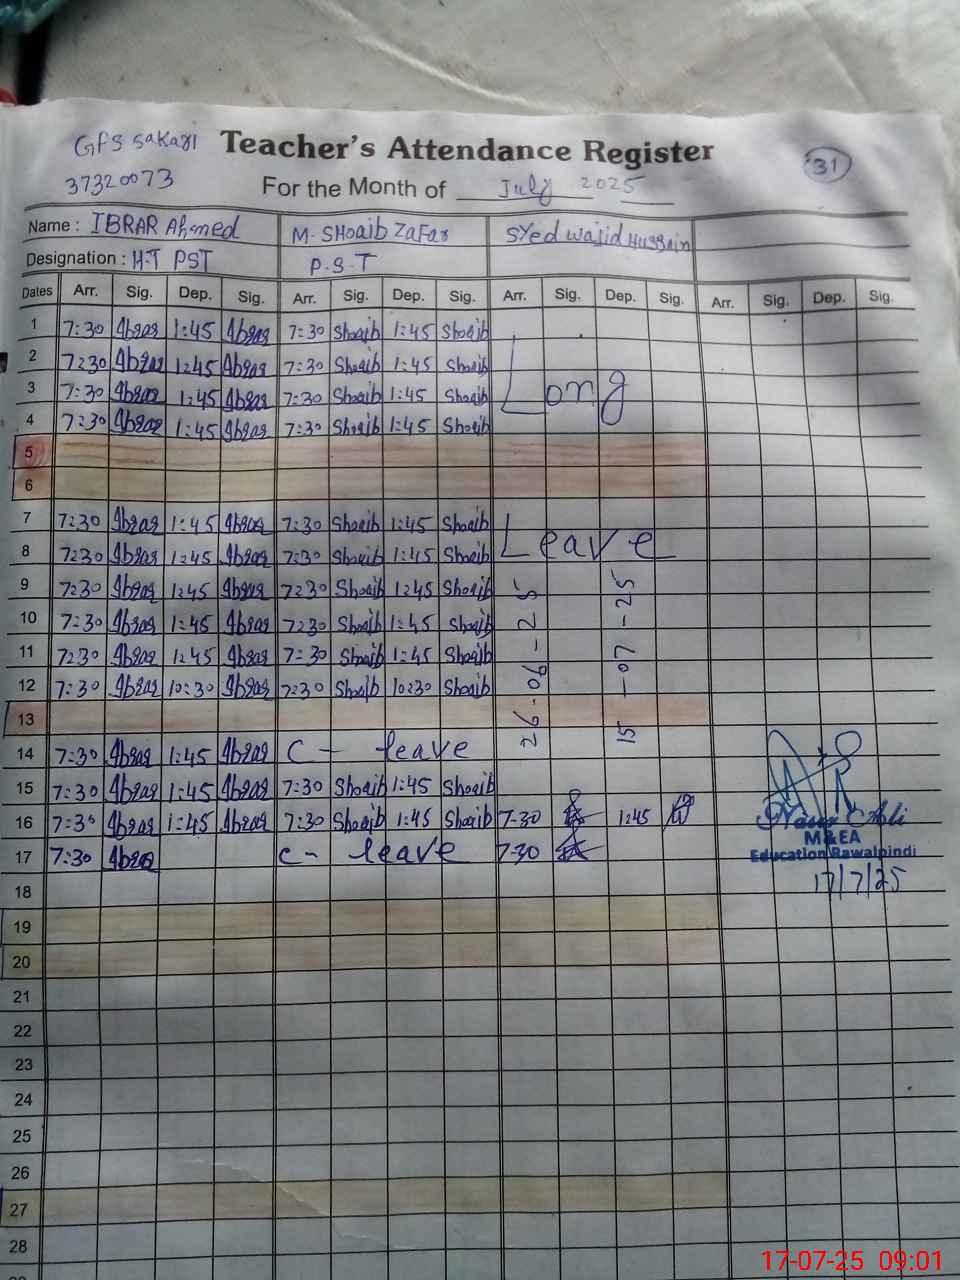 GFS Sakari Teacher's Attendance Register 31
37320073 For the Month of July 2025
Name : IBRAR Ahmed M. SHoaib Zafar SYed Wajid Hussain
Designation : H.T PST P.S.T
Dates Arr. Sig. Dep. Sig. Arr. Sig. Dep. Sig. Arr. Sig. Dep. Sig. Arr. Sig. Dep. Sig.
1 7:30 Abrar 1:45 Abrar 7:30 Shoaib 1:45 Shoaib
2 7:30 Abrar 1:45 Abrar 7:30 Shoaib 1:45 Shoaib
3 7:30 Abrar 1:45 Abrar 7:30 Shoaib 1:45 Shoaib Long
4 7:30 Abrar 1:45 Abrar 7:30 Shoaib 1:45 Shoaib
5
6
7 7:30 Abrar 1:45 Abrar 7:30 Shoaib 1:45 Shoaib
8 7:30 Abrar 1:45 Abrar 7:30 Shoaib 1:45 Shoaib Leave
9 7:30 Abrar 1:45 Abrar 7:30 Shoaib 1:45 Shoaib
10 7:30 Abrar 1:45 Abrar 7:30 Shoaib 1:45 Shoaib
11 7:30 Abrar 1:45 Abrar 7:30 Shoaib 1:45 Shoaib
12 7:30 Abrar 10:30 Abrar 7:30 Shoaib 10:30 Shoaib
26-06-25 15-07-25
13
14 7:30 Abrar 1:45 Abrar C - leave
15 7:30 Abrar 1:45 Abrar 7:30 Shoaib 1:45 Shoaib
16 7:30 Abrar 1:45 Abrar 7:30 Shoaib 1:45 Shoaib 7-30 1:45
17 7:30 Abrar C- leave 7-30
Ali
M&EA
Education Rawalpindi
17/7/25
18
19
20
21
22
23
24
25
26
27
28
17-07-25 09:01